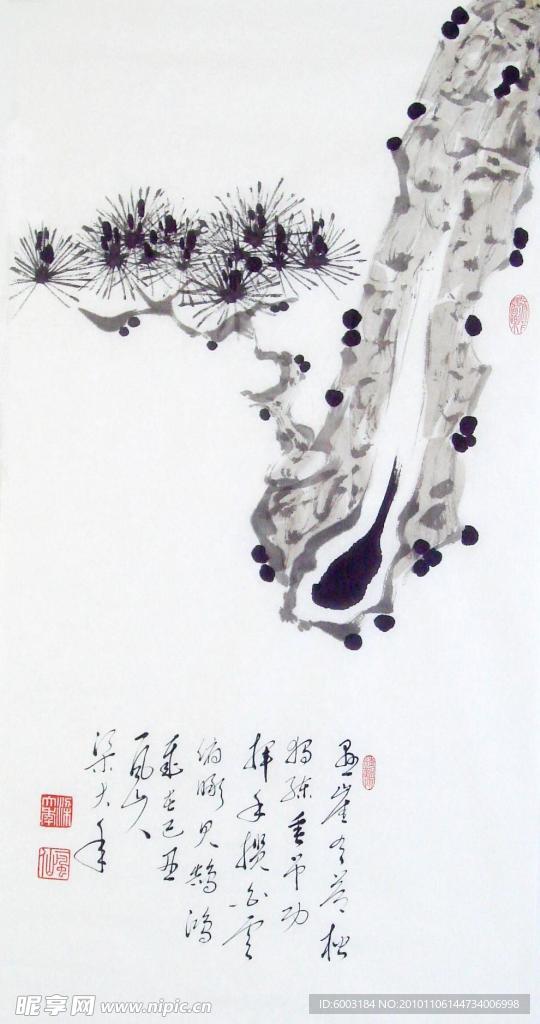 悬崖有苍松
独练垂吊功
挥手揽白云
俯瞰见鹄鸿
岁在己丑
一风山人
梁大年
昵享网 www.nipic.cn
ID:6003184 NO:20101106144734006998